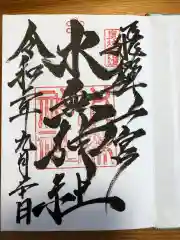 飛騨一宮
水無神社
令和 年九月 日